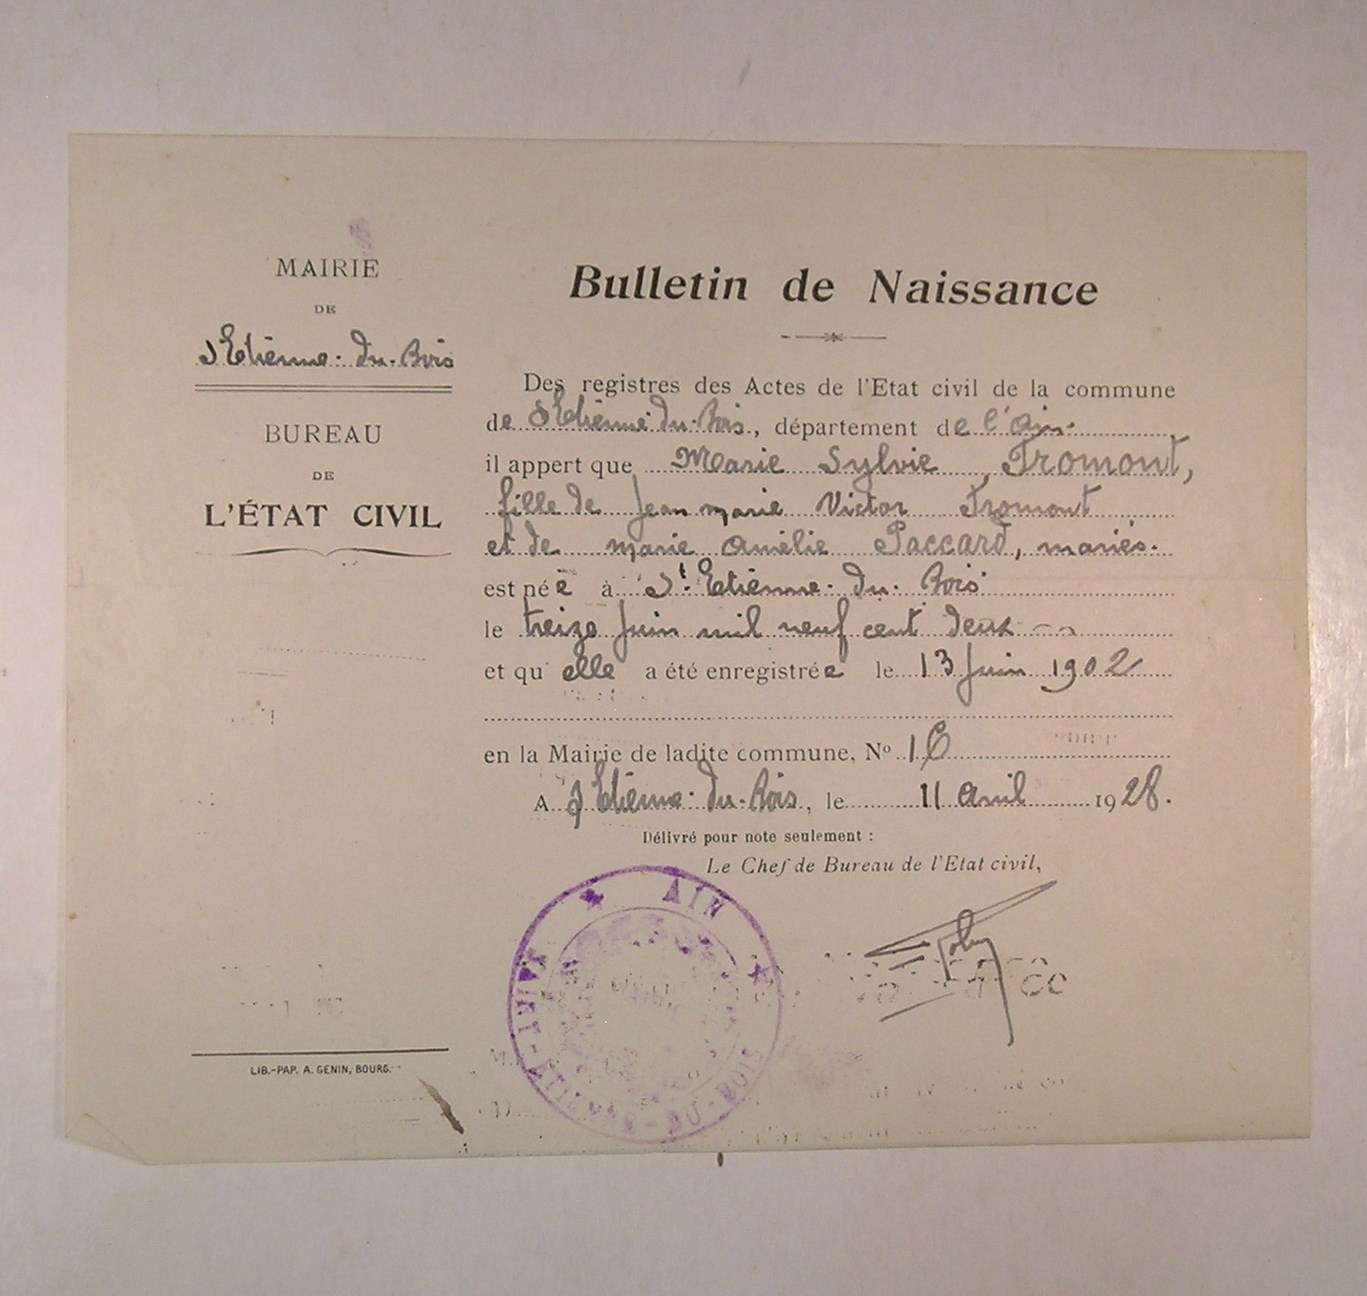 MAIRIE
DE
St Etienne-du-Bois
BUREAU
DE
L'ÉTAT CIVIL
LIB.-PAP. A. GENIN, BOURG.
Bulletin de Naissance
Des registres des Actes de l'Etat civil de la commune
de St Etienne-du-Bois, département de l'Ain.
il appert que Marie Sylvie Fromont,
fille de Jean Marie Victor Fromont
et de Marie Amélie Paccard, mariés.
est née à St. Etienne-du-Bois
le treize Juin mil neuf cent deux
et qu'elle a été enregistrée le 13 Juin 1902
en la Mairie de ladite commune, No
A St Etienne-du-Bois, le 11 Avril 1928.
Délivré pour note seulement :
Le Chef de Bureau de l'Etat civil,
MAIRIE * AIN *
ST-ETIENNE-DU-BOIS